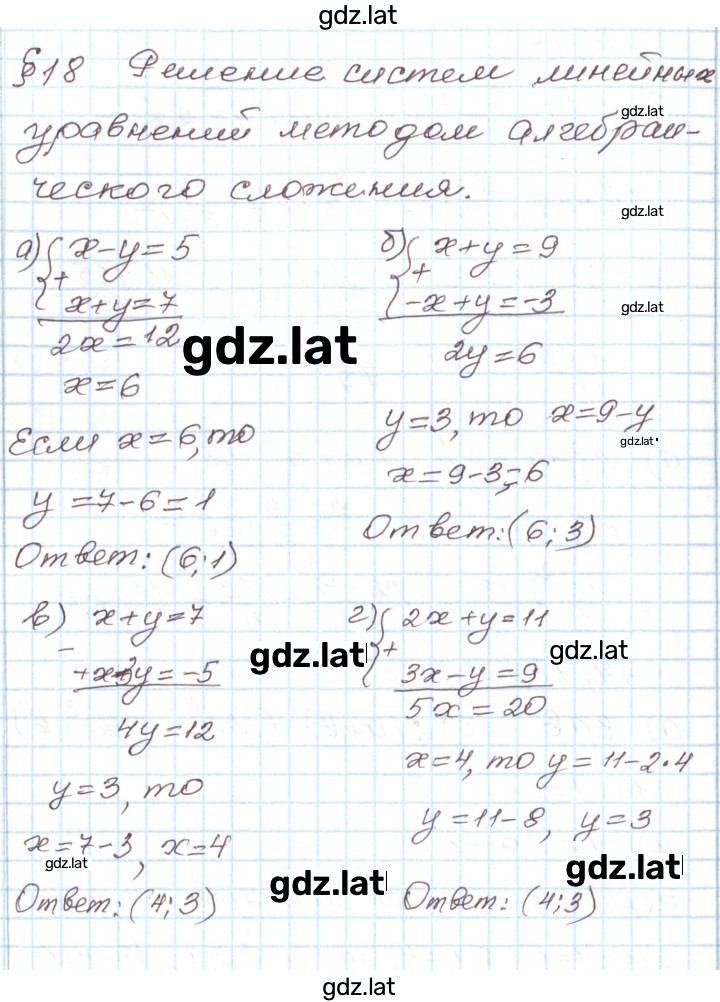 gdz.lat
§18 Решение систем линейных
gdz.lat
уравнений методом алгебраи-
ческого сложения.
gdz.lat
а) { x-y=5
+
x+y=7
2x=12
x=6
Если x=6, то
y=7-6=1
Ответ: (6;1)
б) { x+y=9
+
-x+y=-3
gdz.lat
2y=6
gdz.lat
y=3, то x=9-y
gdz.lat
x=9-3=6
Ответ: (6; 3)
в) x+y=7
-
y=-5
4y=12
y=3, то
x=7-3, x=4
gdz.lat
Ответ: (4; 3)
г) { 2x+y=11
gdz.lat
gdz.lat
+
3x-y=9
5x=20
x=4, то y=11-2·4
y=11-8, y=3
gdz.lat
gdz.lat
Ответ: (4;3)
gdz.lat